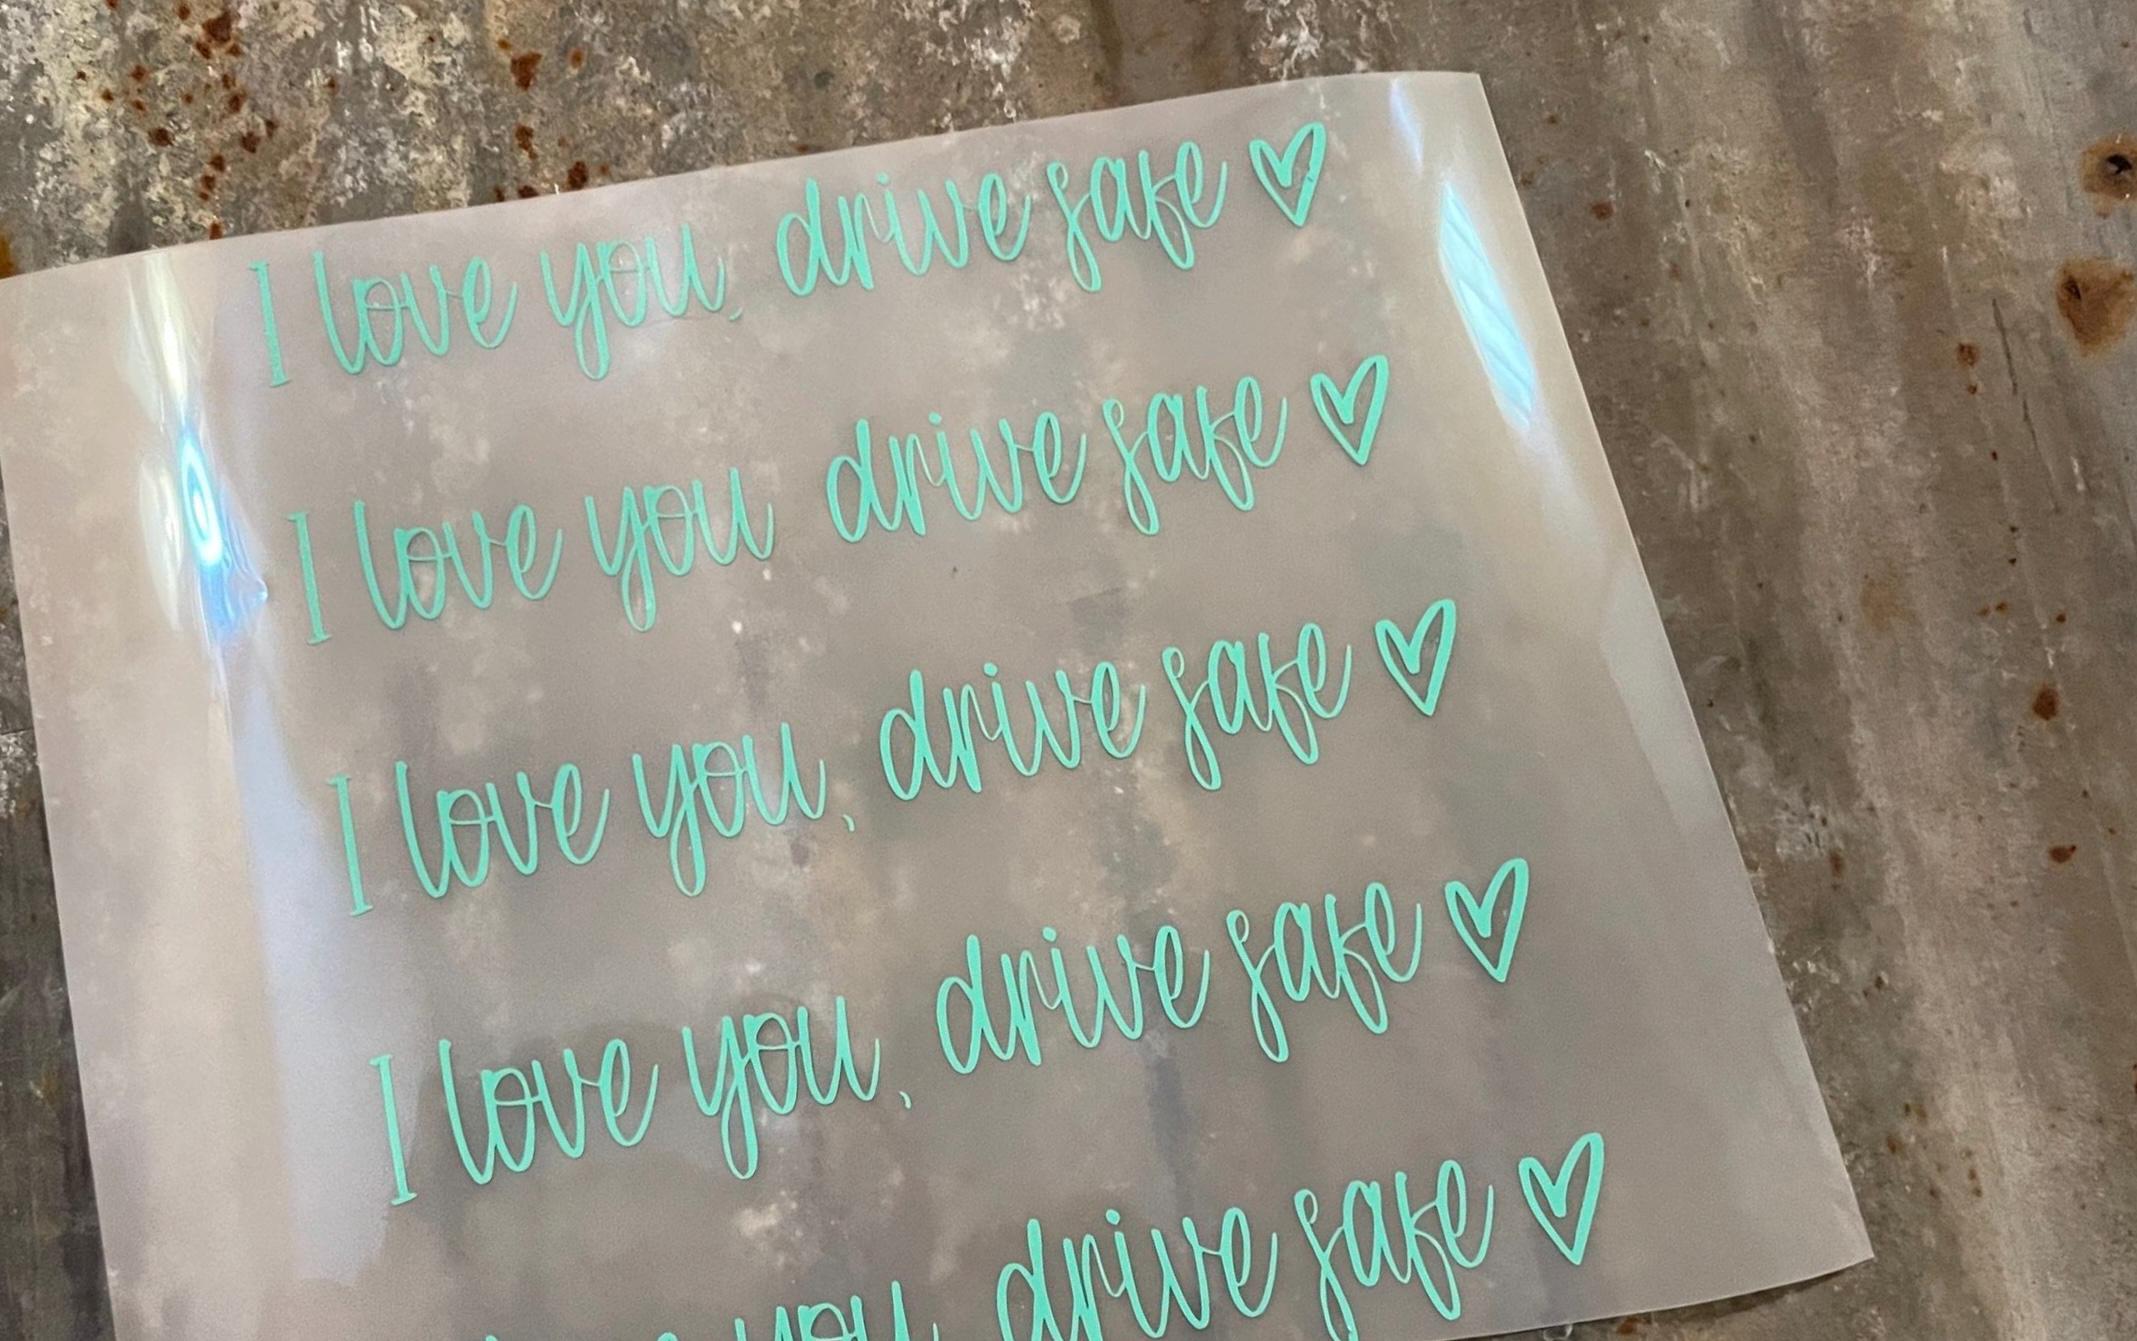 I love you, drive safe ♡
I love you drive safe ♡
I love you, drive safe ♡
I love you, drive safe ♡
you drive safe ♡